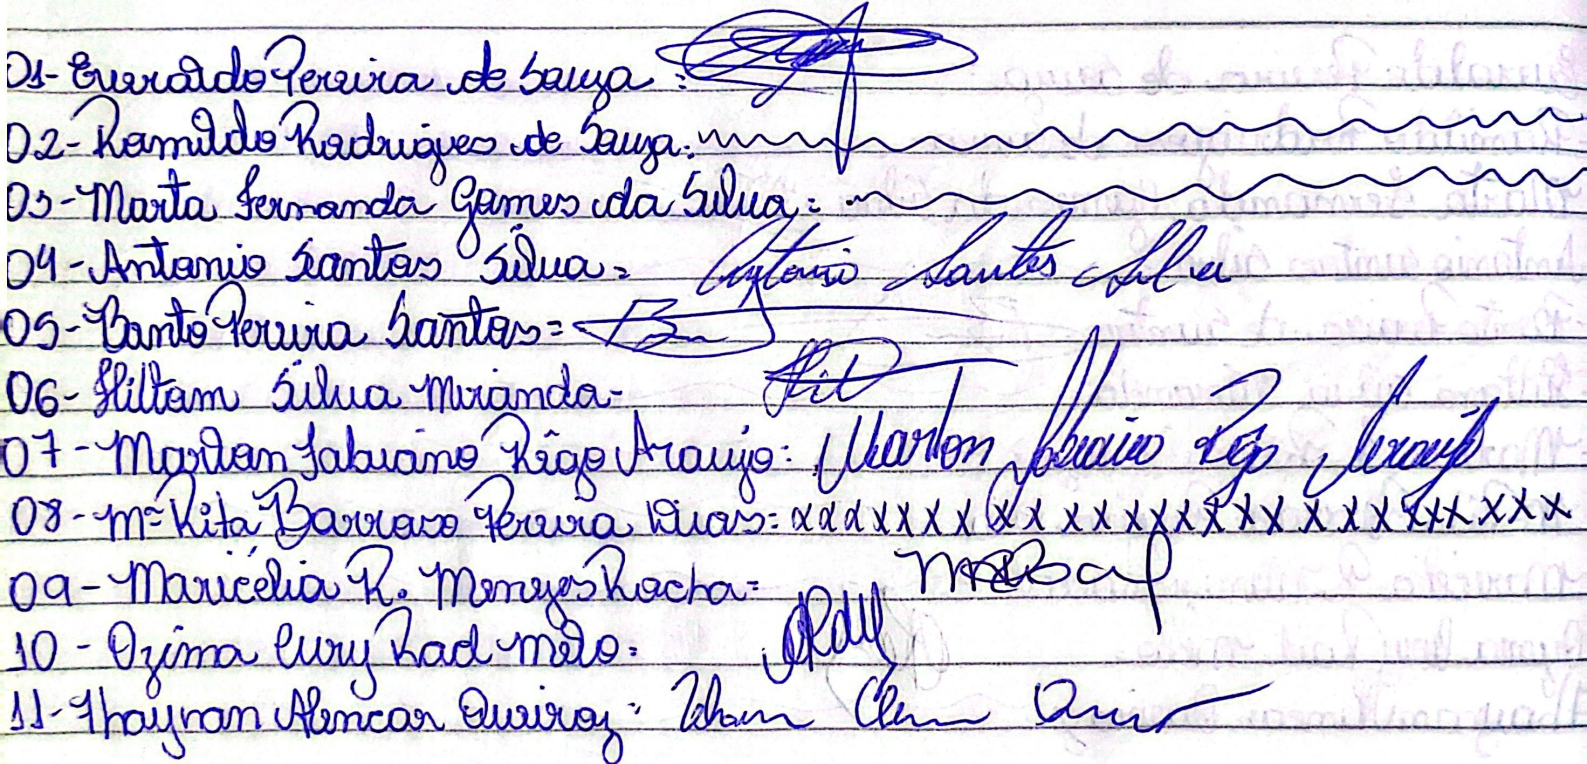 01- Everaldo Pereira de Souza:
02- Romildo Rodrigues de Souza:
03- Marta Fernanda Gomes da Silva:
04- Antonio Santos Silva: Antonio Santos Silva
05- Banto Pereira Santos:
06- Hiltom Silva Miranda-
07- Marlon Fabiano Rêgo Araujo: Marlon Fabiano Rego Araujo
08- Mª Rita Barroso Pereira Dias: xxxxxxxxxxxxxxxxxxxxxxxx
09- Maricélia R. Menezes Rocha:
10- Ozima Cury Rad melo:
11- Thaynan Alencar Queiroz: